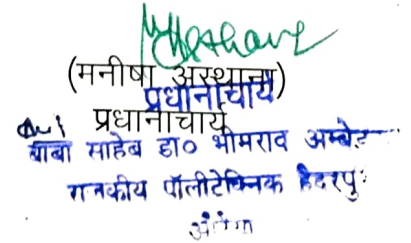 (मनीषा अस्थाना)
प्रधानाचार्य
प्रधानाचार्य
बाबा साहेब डा० भीमराव अम्बेड
राजकीय पॉलीटेक्निक